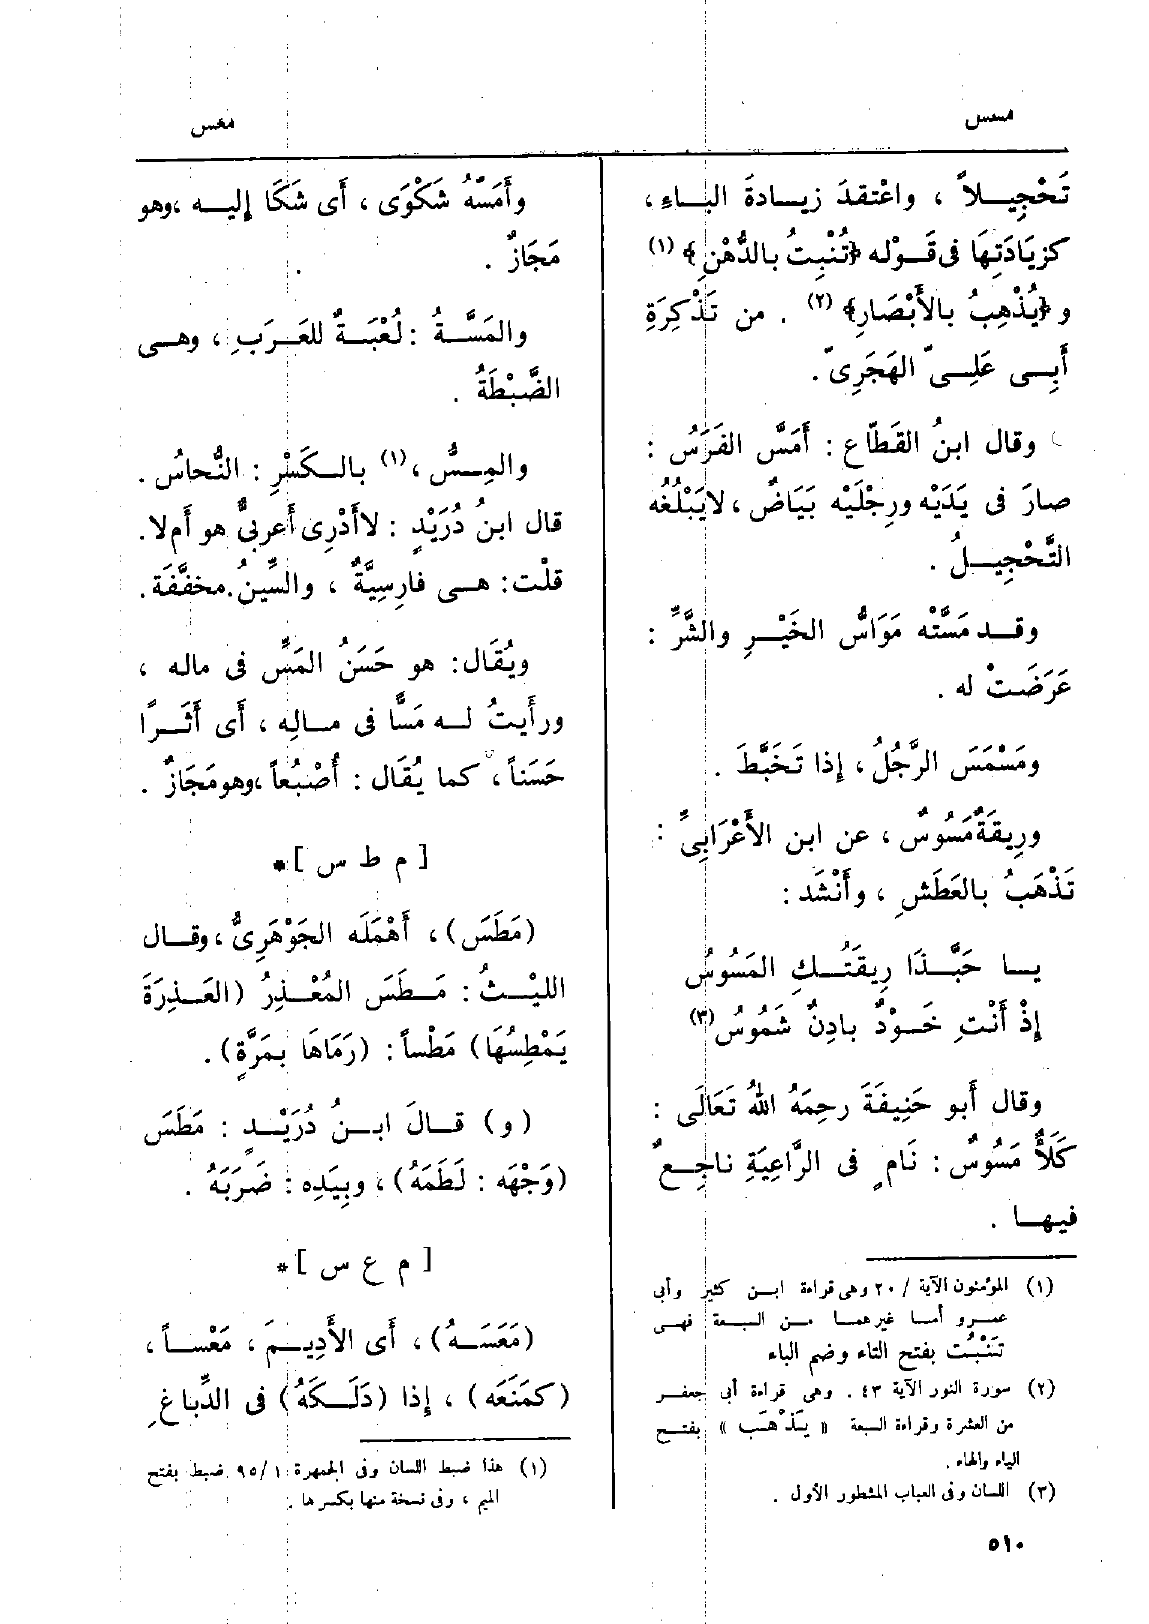 مسس
معس
تَحْجِيـلاً ، واعْتقدَ زيـادةَ البـاءِ ،
كزِيَادَتِهَا فى قَـوْله ﴿تُنْبِتُ بالدُّهْنِ﴾ (١)
و ﴿يُذْهِبُ بالأَبْصَارِ﴾ (٢) . من تَذْكِرَةِ
أَبِـى عَلِـىّ الهَجَرِىّ .
وقال ابنُ القَطّاع : أَمَسَّ الفَرَسُ :
صارَ فى يَدَيْه ورِجْلَيْه بَيَاضٌ ، لايَبْلُغُه
التَّحْجِيـلُ .
وقـد مَسَّتْه مَوَاسُّ الخَيْـرِ والشَّرِّ :
عَرَضَتْ له .
ومَسْمَسَ الرَّجُلُ ، إذا تَخَبَّطَ .
ورِيقَةٌ مَسُوسٌ ، عن ابن الأَعْرَابِىِّ :
تَذْهَبُ بالعَطَشِ ، وأَنْشَد :
يـا حَبَّـذَا رِيقَتُـكِ المَسُوسُ
إِذْ أَنْتِ خَـوْدٌ بادِنٌ شَمُوسُ (٣)
وقال أَبو حَنِيفَةَ رحِمَهُ اللهُ تَعَالَى :
كَلَأٌ مَسُوسٌ : نَامٍ فى الرَّاعِيَةِ ناجِـعٌ
فيهـا .
(١) المؤمنون الآية / ٢٠ وهى قراءة ابـن كثير وأبى
عمـرو أمـا غيرهمـا مـن السبعة فهـى
تَنْبُتُ بفتح التاء وضم الباء
(٢) سورة النور الآية ٤٣ . وهى قراءة أبى جعفـر
من العشرة وقراءة السبعة « يَذْهَب » بفتـح
الياء والهاء .
(٣) اللسان وفى العباب المشطور الأول .
وأَمَسَّهُ شَكْوَى ، أَى شَكَا إِليـه ،وهو
مَجَازٌ .
والمَسَّـةُ : لُعْبَـةٌ للعَـرَبِ ، وهـى
الضَّبْطَةُ .
والمِـسُّ ،(١) بالـكَسْرِ : النُّحاسُ .
قال ابنُ دُرَيْدٍ : لاأَدْرِى أَعربىٌّ هو أَم لا.
قلْت: هـى فارِسِيَّةٌ ، والسِّينُ مخفَّفَة.
ويُقَال: هو حَسَنُ المَسِّ فى ماله ،
ورأَيتُ لـه مَسًّا فى مـالِه ، أَى أَثَـرًا
حَسَناً ، كما يُقَال : أُصْبُعاً ،وهو مَجَازٌ .
[ م ط س ]*
(مَطَسَ) ، أَهْمَلَه الجَوْهَرِىُّ ، وقـال
الليْـثُ : مَـطَسَ المُعْـذِرُ (العَـذِرَةَ
يَمْطِسُهَا) مَطْساً : (رَمَاهَا بمَرَّةٍ) .
( و ) قـالَ ابـنُ دُرَيْـدٍ : مَطَسَ
(وَجْهَه : لَطَمَهُ) ، وبِيَدِه : ضَرَبَهُ .
[ م ع س ]*
(مَعَسَـهُ) ، أَى الأَدِيـمَ ، مَعْسـاً ،
(كمَنَعَه) ، إِذا (دَلَـكَهُ) فى الدِّباغِ
(١) هذا ضبط اللسان وفى الجمهرة ٩٥/١ ضبط بفتح
الميم ، وفى نسخة منها بكسرها .
٥١٠